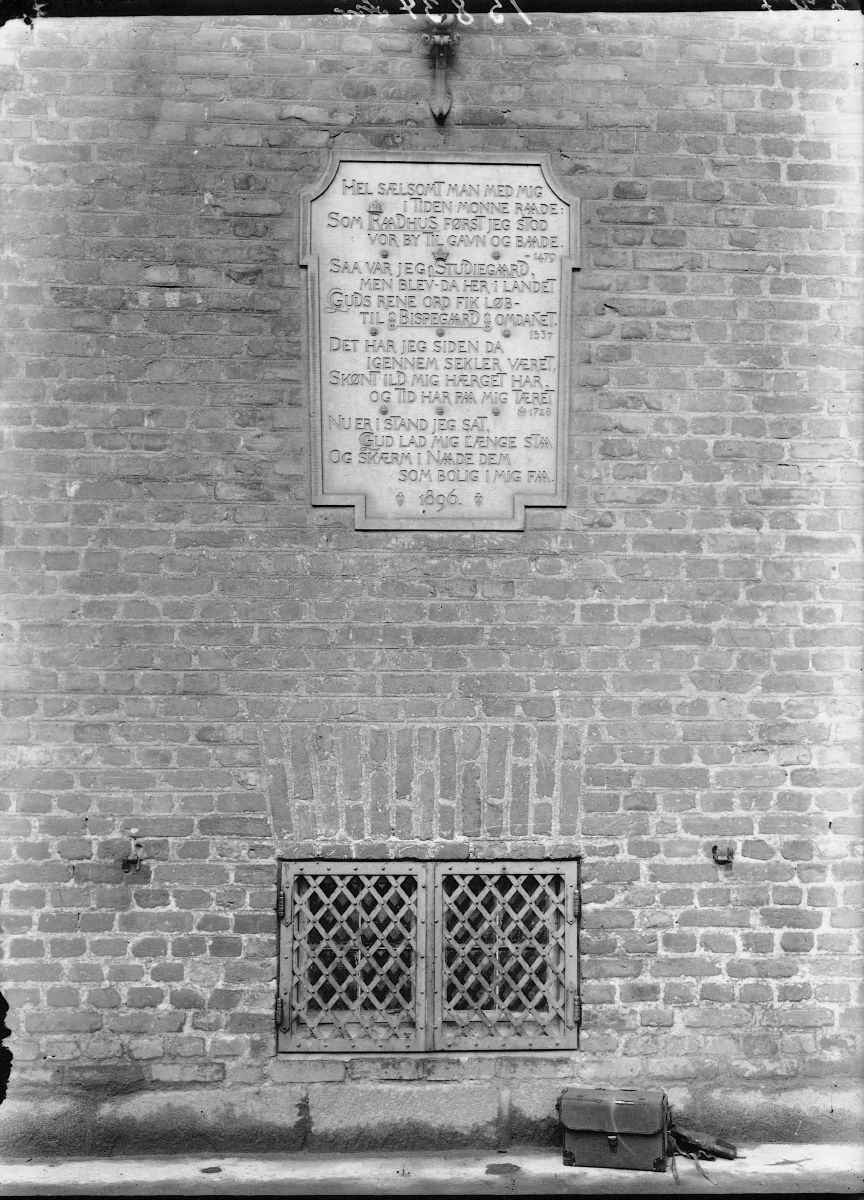 HEL SÆLSOMT MAN MED MIG
I TIDEN MONNE RAADE
SOM RAADHUS FØRST JEG STOD
VOR BY TIL GAVN OG BAADE.
-1479
SAA VAR JEG STUDIEGAARD,
MEN BLEV-DA HER I LANDET
GUDS RENE ORD FIK LØB-
TIL BISPEGAARD OMDANET.
1537
DET HAR JEG SIDEN DA
IGENNEM SEKLER VÆRET
SKØNT ILD MIG HÆRGET HAR,
OG TID HAR PAA MIG TÆRET
1728
NU ER I STAND JEG SAT,
GUD LAD MIG LÆNGE STAA
OG SKÆRM I NAADE DEM
SOM BOLIG I MIG FAA.
1896.